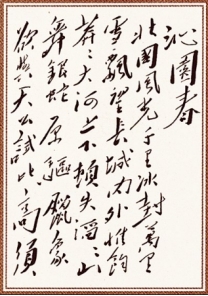 沁園春
北國風光千里冰封萬里
雪飄望長城內外惟餘
莽々大河上下頓失滔々山
舞銀蛇原驅臘象
欲與天公試比高須